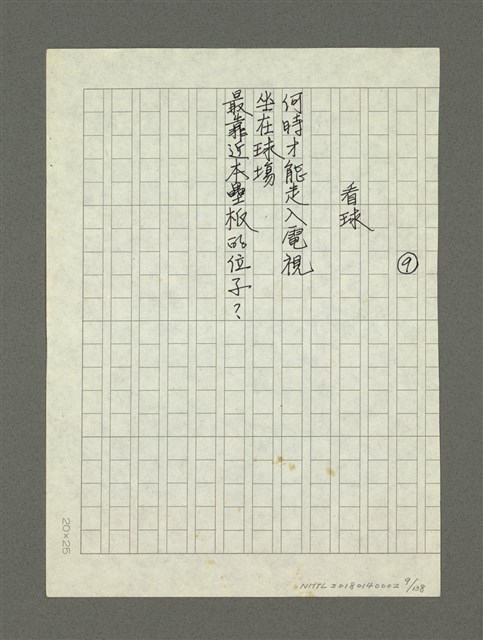 ⑨
看球
何時才能走入電視
坐在球場
最靠近本壘板的位子？
20×25
NMTL20180140002 9/138